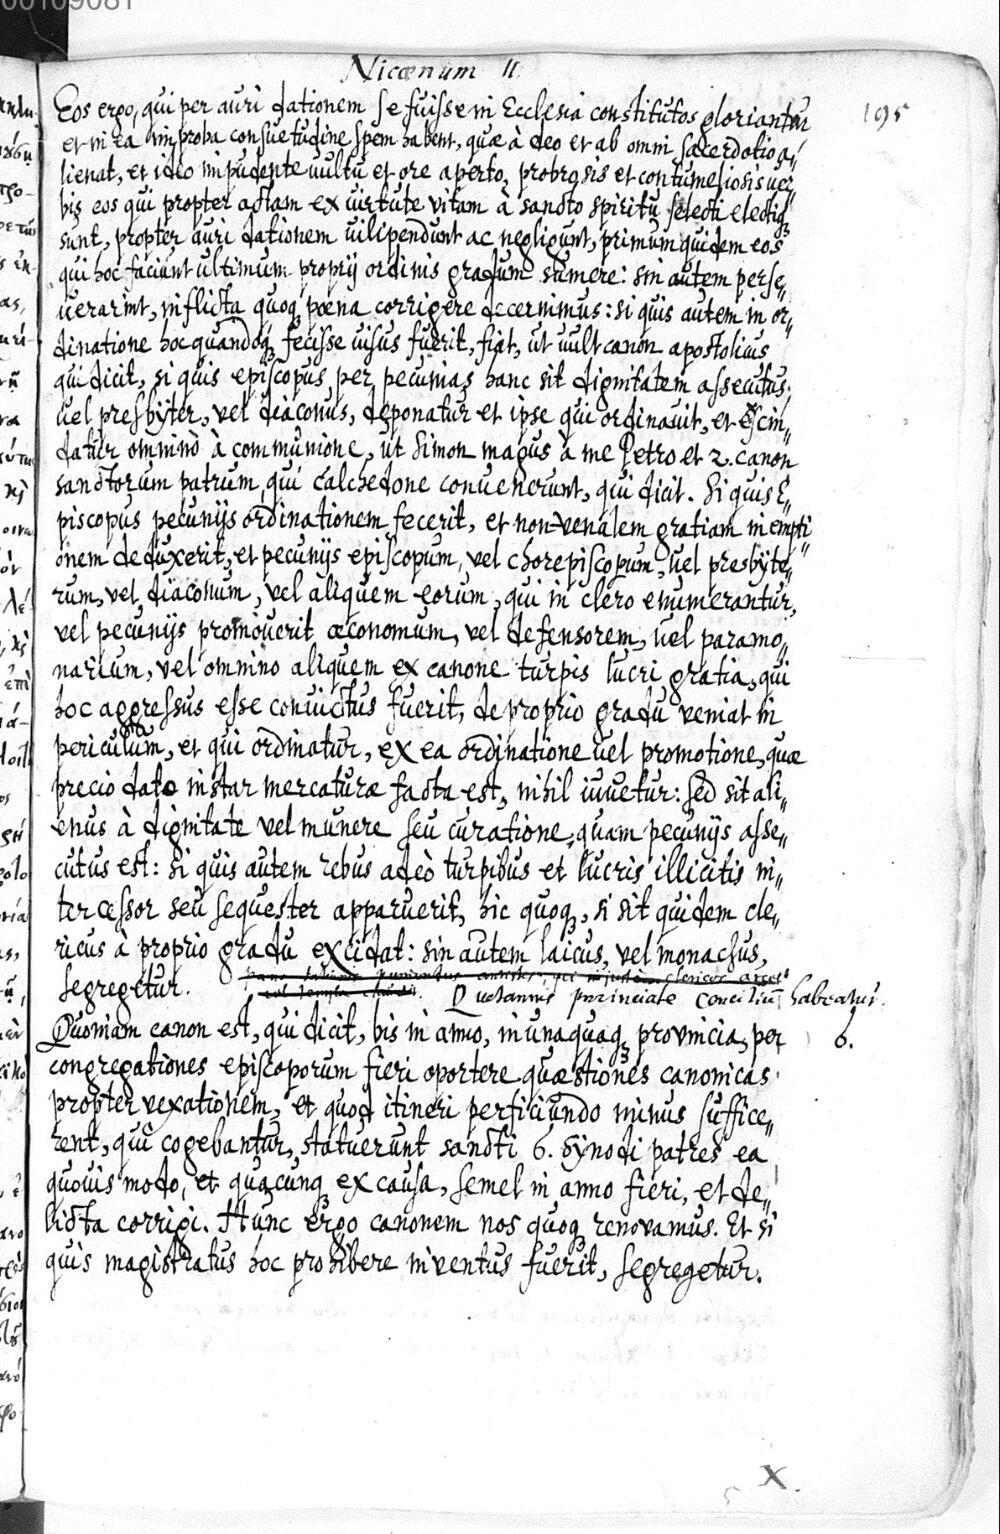 00109081
Nicænum II
195
Eos ergo, qui per auri dationem se fuisse in Ecclesia constitutos gloriantur
et in ea improba consuetudine spem habent, quæ à deo et ab omni sacerdotio a„
lienat, et ideo impudente uultu et ore aperto, probrosis et contumeliosis uer„
bis eos qui propter actam ex uirtute vitam à sancto spiritu selecti electiq;
sunt, propter auri dationem uilipendunt ac negligunt, primum quidem eos
qui hoc faciunt ultimum proprij ordinis gradum sumere: sin autem perse„
uerarint, inflicta quoq; pœna corrigere decernimus: si quis autem in or„
dinatione hoc quandoq; fecisse uisus fuerit, fiat, ut uult canon apostolius
qui dicit, si quis episcopus per pecunias hanc sit dignitatem assecutus,
uel presbyter, vel diaconus, deponatur et ipse qui ordinauit, et exscin„
datur omnino à communione, ut Simon magus à me Petro et 2. canon
sanctorum patrum, qui Calchedone conuenerunt, qui dicit. Si quis E„
piscopus pecunijs ordinationem fecerit, et non venalem gratiam in empti„
onem deduxerit, et pecunijs episcopum, vel chorepiscopum, uel presbyte„
rum, vel diaconum, vel aliquem eorum, qui in clero enumerantur,
vel pecunijs promouerit œconomum, vel defensorem, uel paramo„
narium, vel omnino aliquem ex canone turpis lucri gratia, qui
hoc aggressus esse conuictus fuerit, de proprio gradu veniat in
periculum, et qui ordinatur, ex ea ordinatione uel promotione, quæ
precio dato instar mercaturæ facta est, nihil iuuetur: sed sit ali„
enus à dignitate vel munere seu curatione, quam pecunijs asse„
cutus est: si quis autem rebus adeò turpibus et lucris illicitis in„
tercessor seu sequester apparuerit, hic quoq;, si sit quidem cle„
ricus à proprio gradu excidat: sin autem laicus, vel monachus,
segregetur.
Quotannis provinciale Concilium habeatur.
Quoniam canon est, qui dicit, bis in anno, in unaquaq; provincia, per 6.
congregationes episcoporum fieri oportere quæstiones canonicas
propter vexationem, et quod itineri perficiundo minus suffice„
rent, qui cogebantur, statuerunt sancti 6. Synodi patres ea
quouis modo, et quacunq; ex causa, semel in anno fieri, et de„
licta corrigi. Hunc ergo canonem nos quoq; renovamus. Et si
quis magistratus hoc prohibere inventus fuerit, segregetur.
X.